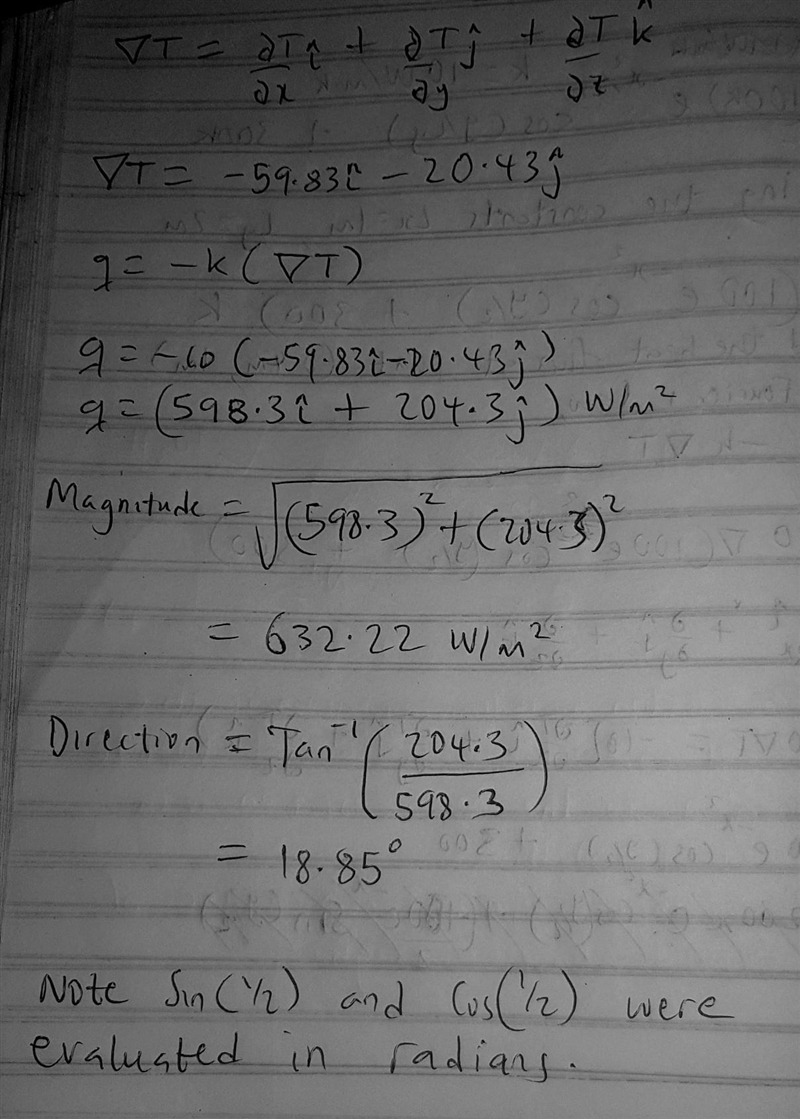 ∇T = ∂T/∂x î + ∂T/∂y ĵ + ∂T/∂z k̂
∇T = -59.83î - 20.43ĵ
q = -k(∇T)
q = -10(-59.83î-20.43ĵ)
q = (598.3î + 204.3ĵ) W/m²
Magnitude = √((598.3)² + (204.3)²)
= 632.22 W/m²
Direction = Tan⁻¹(204.3/598.3)
= 18.85°
Note Sin(1/2) and Cos(1/2) were
evaluated in radians.